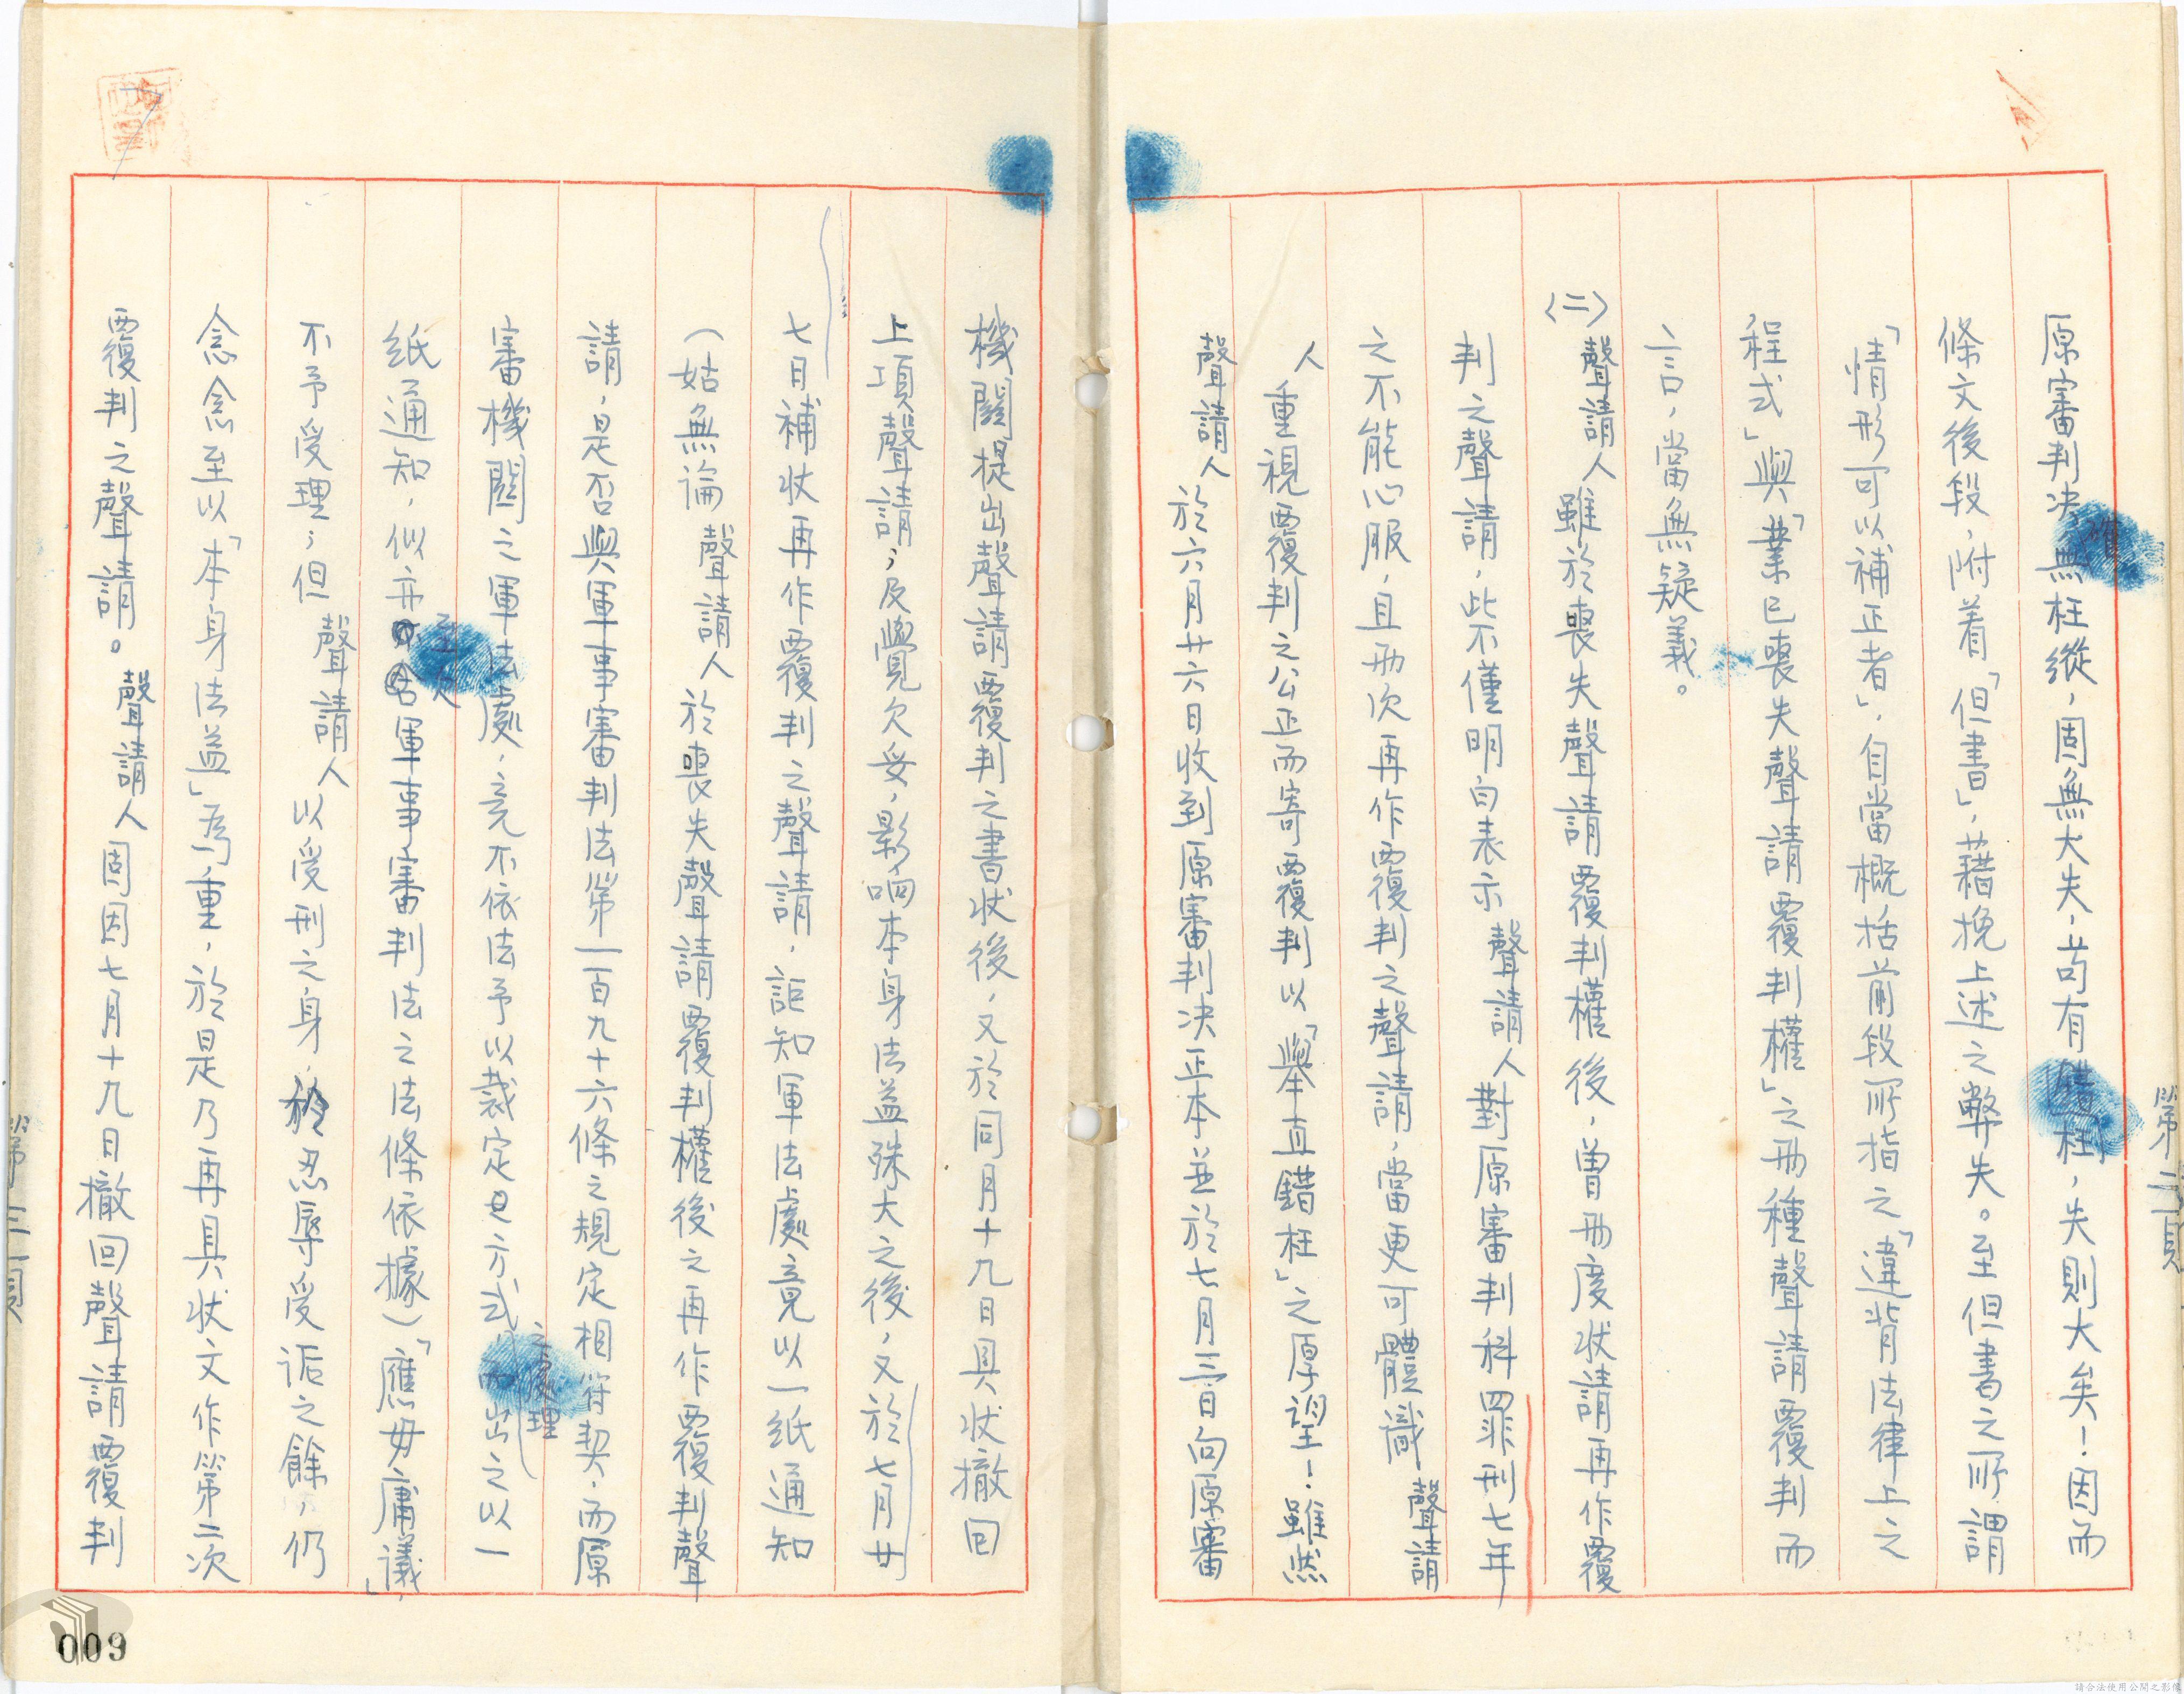 原審判決確無枉縱，固無大失，苟有錯枉，失則大矣！因而
條文後段，附着「但書」，藉挽上述之弊失。至但書之所謂
「情形可以補正者」，自當概括前段所指之「違背法律上之
程式」與「業已喪失聲請覆判權」之兩種聲請覆判而
言，當無疑義。
〈二〉聲請人雖於喪失聲請覆判權後，曾兩度狀請再作覆
判之聲請，此不僅明白表示聲請人對原審判科罪刑七年
之不能心服，且兩次再作覆判之聲請，當更可體識聲請
人重視覆判之公正而寄覆判以「舉直錯枉」之厚望！雖然
聲請人於六月廿六日收到原審判決正本，並於七月三日向原審
第二頁
機關提出聲請覆判之書狀後，又於同月十九日具狀撤回
上項聲請；及覺欠妥，影响本身法益殊大之後，又於七月廿
七日補狀再作覆判之聲請，詎知軍法處竟以一紙通知
（姑無論聲請人於喪失聲請覆判權後之再作覆判聲
請，是否與軍事審判法第一百九十六條之規定相符契，而原
審機關之軍法處，竟不依法予以裁定之方式之處理，出之以一
紙通知，似亦至欠軍事審判法之法條依據）「應毋庸議」，
不予受理；但聲請人以受刑之身，於忍辱受詬之餘，仍
念念至以「本身法益」為重，於是乃再具狀文作第二次
覆判之聲請。聲請人固因七月十九日撤回聲請覆判
第三頁
009
請合法使用公開之影像